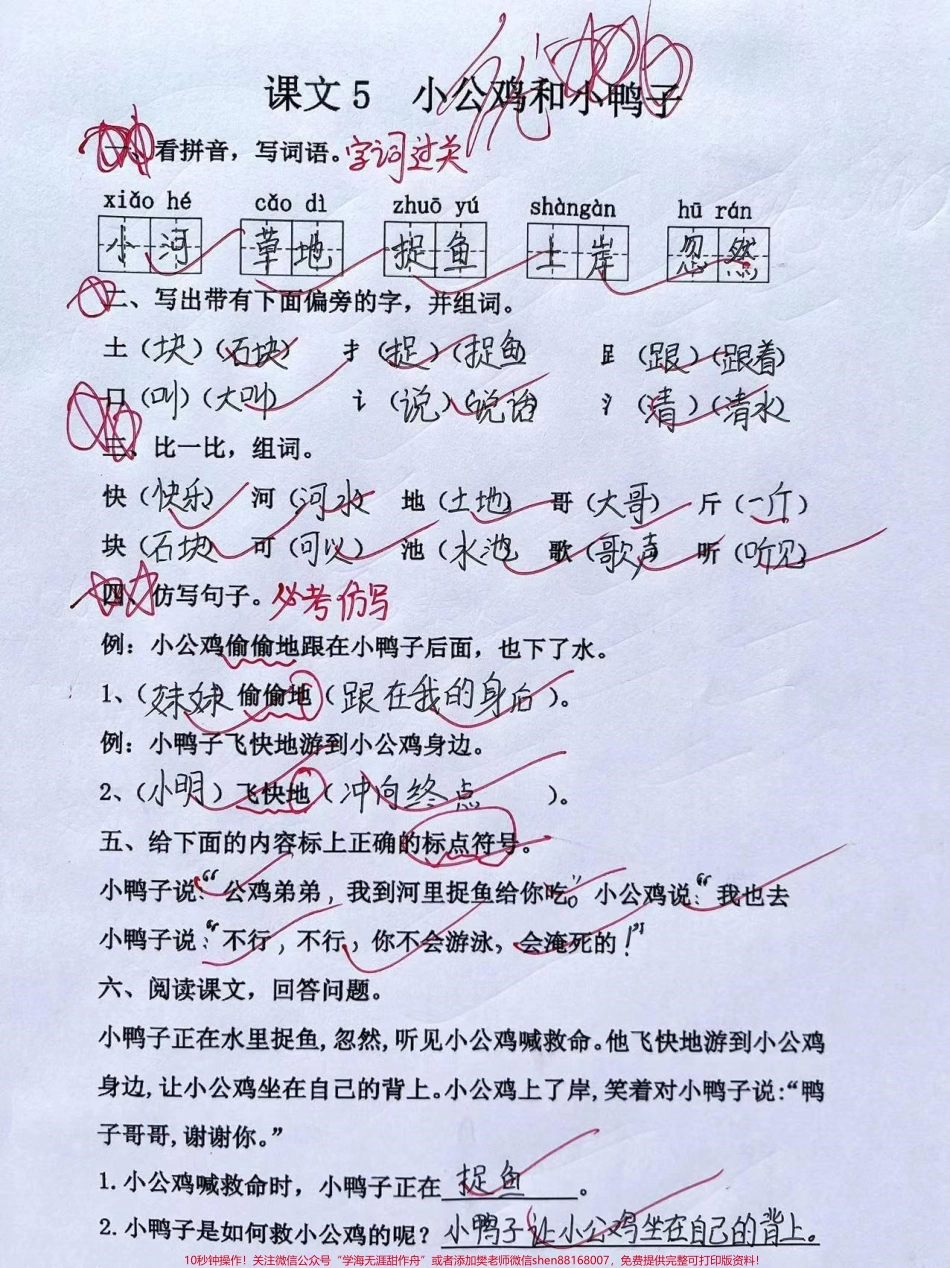 课文5 小公鸡和小鸭子
一、看拼音，写词语。字词过关
xiǎo hé cǎo dì zhuō yú shàngàn hū rán
小河 草地 捉鱼 上岸 忽然
二、写出带有下面偏旁的字，并组词。
土（块）（石块） 扌（捉）（捉鱼） ⻊（跟）（跟着）
口（叫）（大叫） 讠（说）（说话） 氵（清）（清水）
三、比一比，组词。
快（快乐） 河（河水） 地（土地） 哥（大哥） 斤（一斤）
块（石块） 可（可以） 池（水池） 歌（歌声） 听（听见）
四、仿写句子。必考仿写
例：小公鸡偷偷地跟在小鸭子后面，也下了水。
1、（妹妹）偷偷地（跟在我的身后）。
例：小鸭子飞快地游到小公鸡身边。
2、（小明）飞快地（冲向终点）。
五、给下面的内容标上正确的标点符号。
小鸭子说：“公鸡弟弟，我到河里捉鱼给你吃。”小公鸡说：“我也去
小鸭子说：“不行，不行，你不会游泳，会淹死的！”
六、阅读课文，回答问题。
小鸭子正在水里捉鱼,忽然,听见小公鸡喊救命。他飞快地游到小公鸡
身边,让小公鸡坐在自己的背上。小公鸡上了岸,笑着对小鸭子说:“鸭
子哥哥,谢谢你。”
1.小公鸡喊救命时，小鸭子正在捉鱼。
2.小鸭子是如何救小公鸡的呢？小鸭子让小公鸡坐在自己的背上。
10秒钟操作！关注微信公众号“学海无涯甜作舟”或者添加樊老师微信shen88168007，免费提供完整可打印版资料！